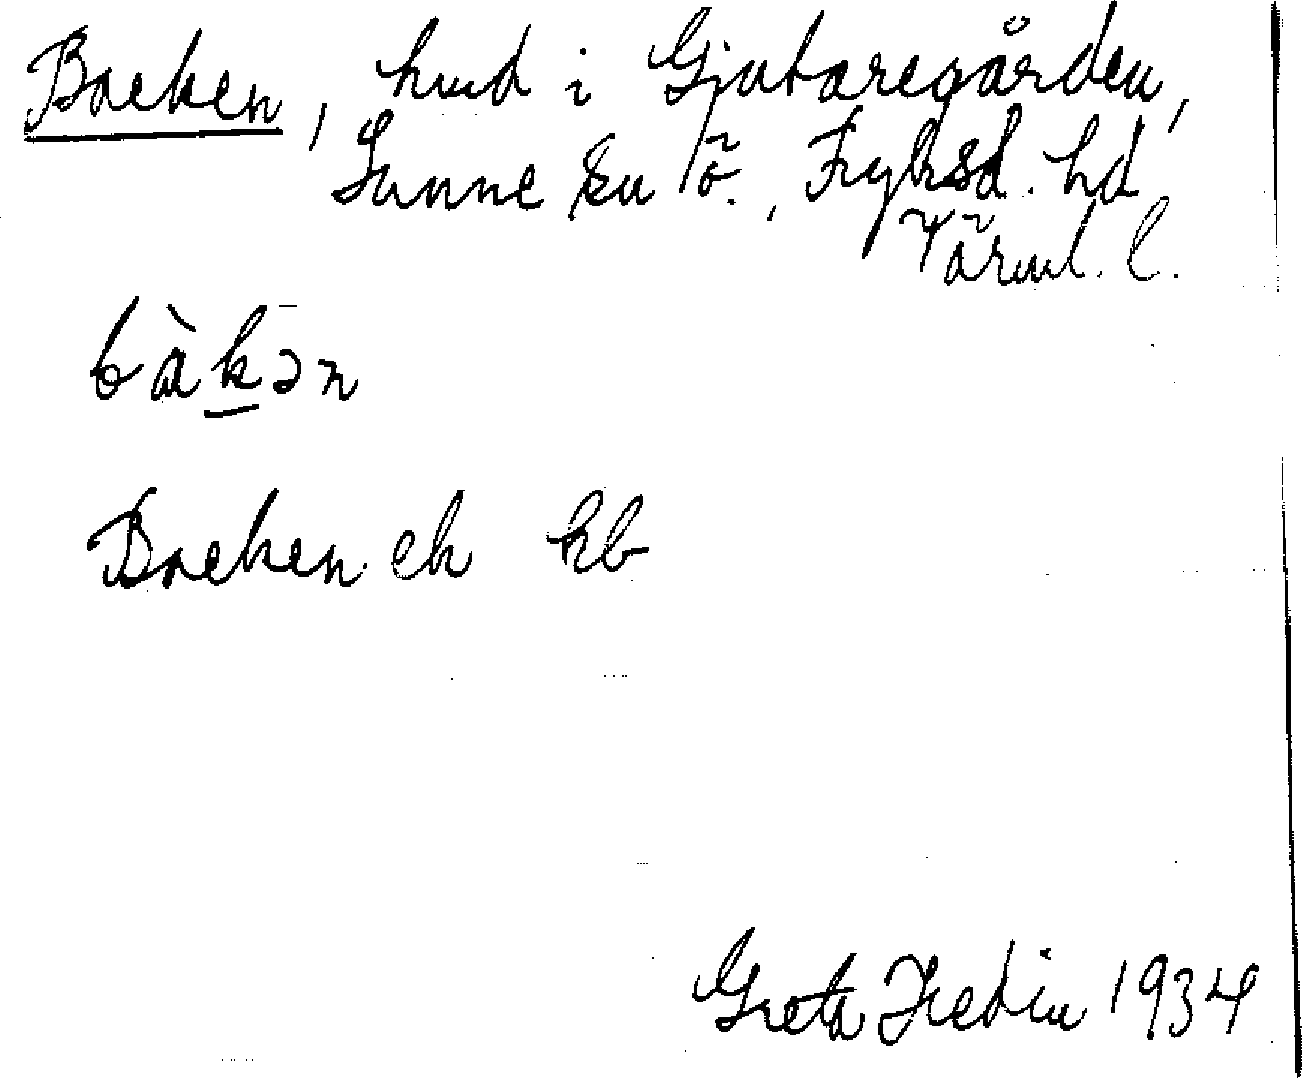 Backen, hmd i Gjutaregården,
Sunne sn ö., Fryksd. hd
Värml. l.
bàk̲ən
Backen ek kb
Greta Hedin 1934